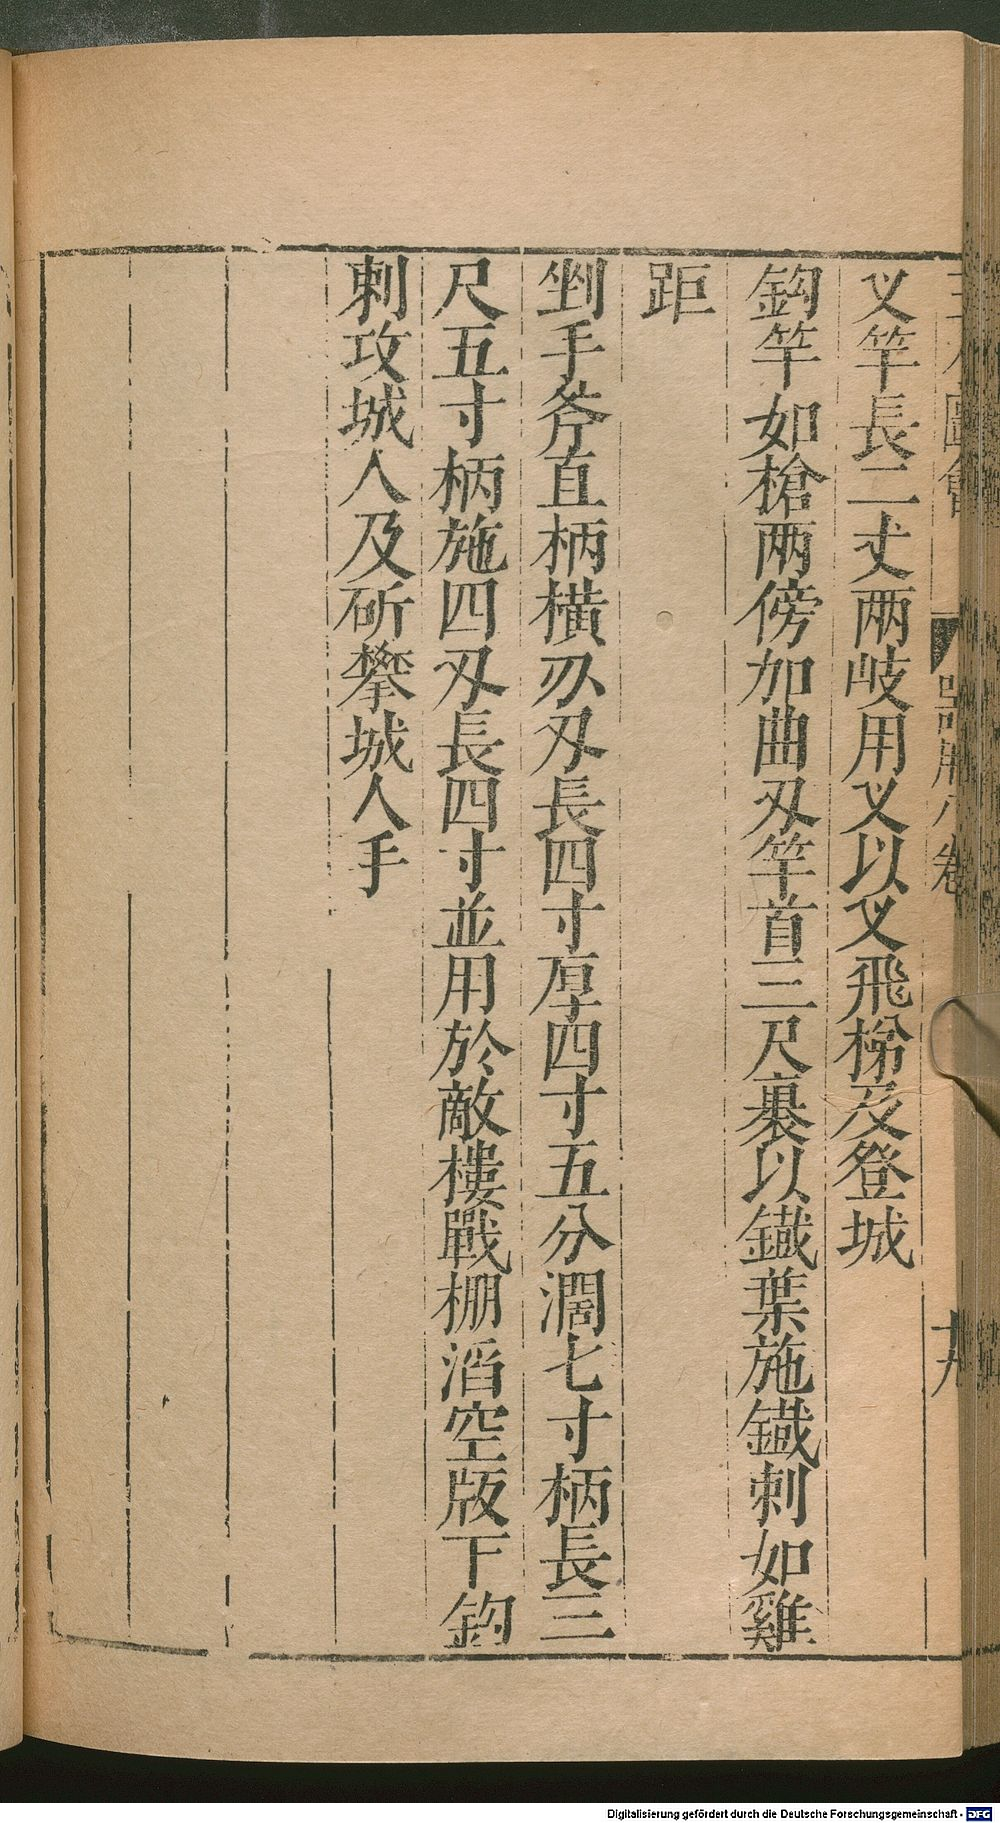 叉竿長二丈两岐用叉以叉飛梯及登城
鈎竿如槍两傍加曲刄竿首三尺裹以鐡葉施鐡刺如雞
距
剉手斧直柄横刅刄長四寸厚四寸五分濶七寸柄長三
尺五寸柄施四刄長四寸並用於敵樓戰棚滔空版下鈎
刺攻城人及斫攀城人手
圖會
器用八卷
十九
Digitalisierung gefördert durch die Deutsche Forschungsgemeinschaft - DFG